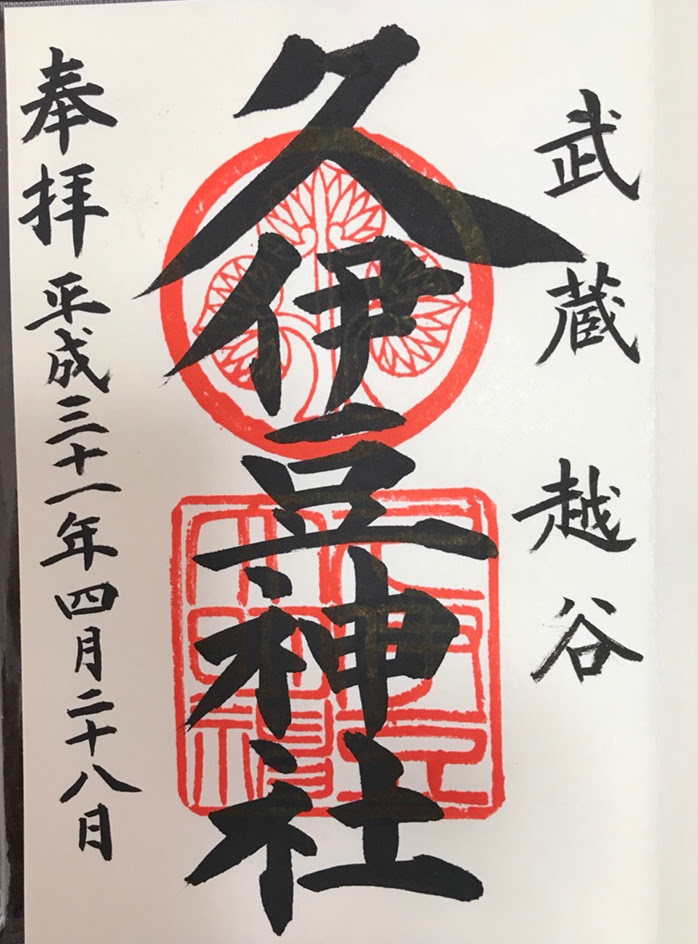 武蔵 越谷
久伊豆神社
奉拝 平成三十一年四月二十八日